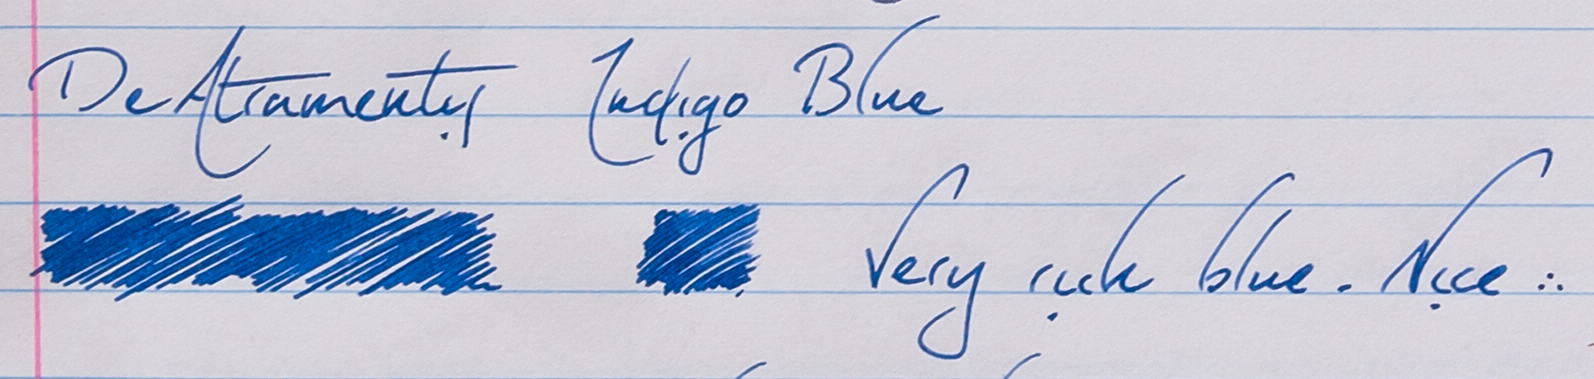 De Atramentis Indigo Blue
Very rich blue. Nice :.